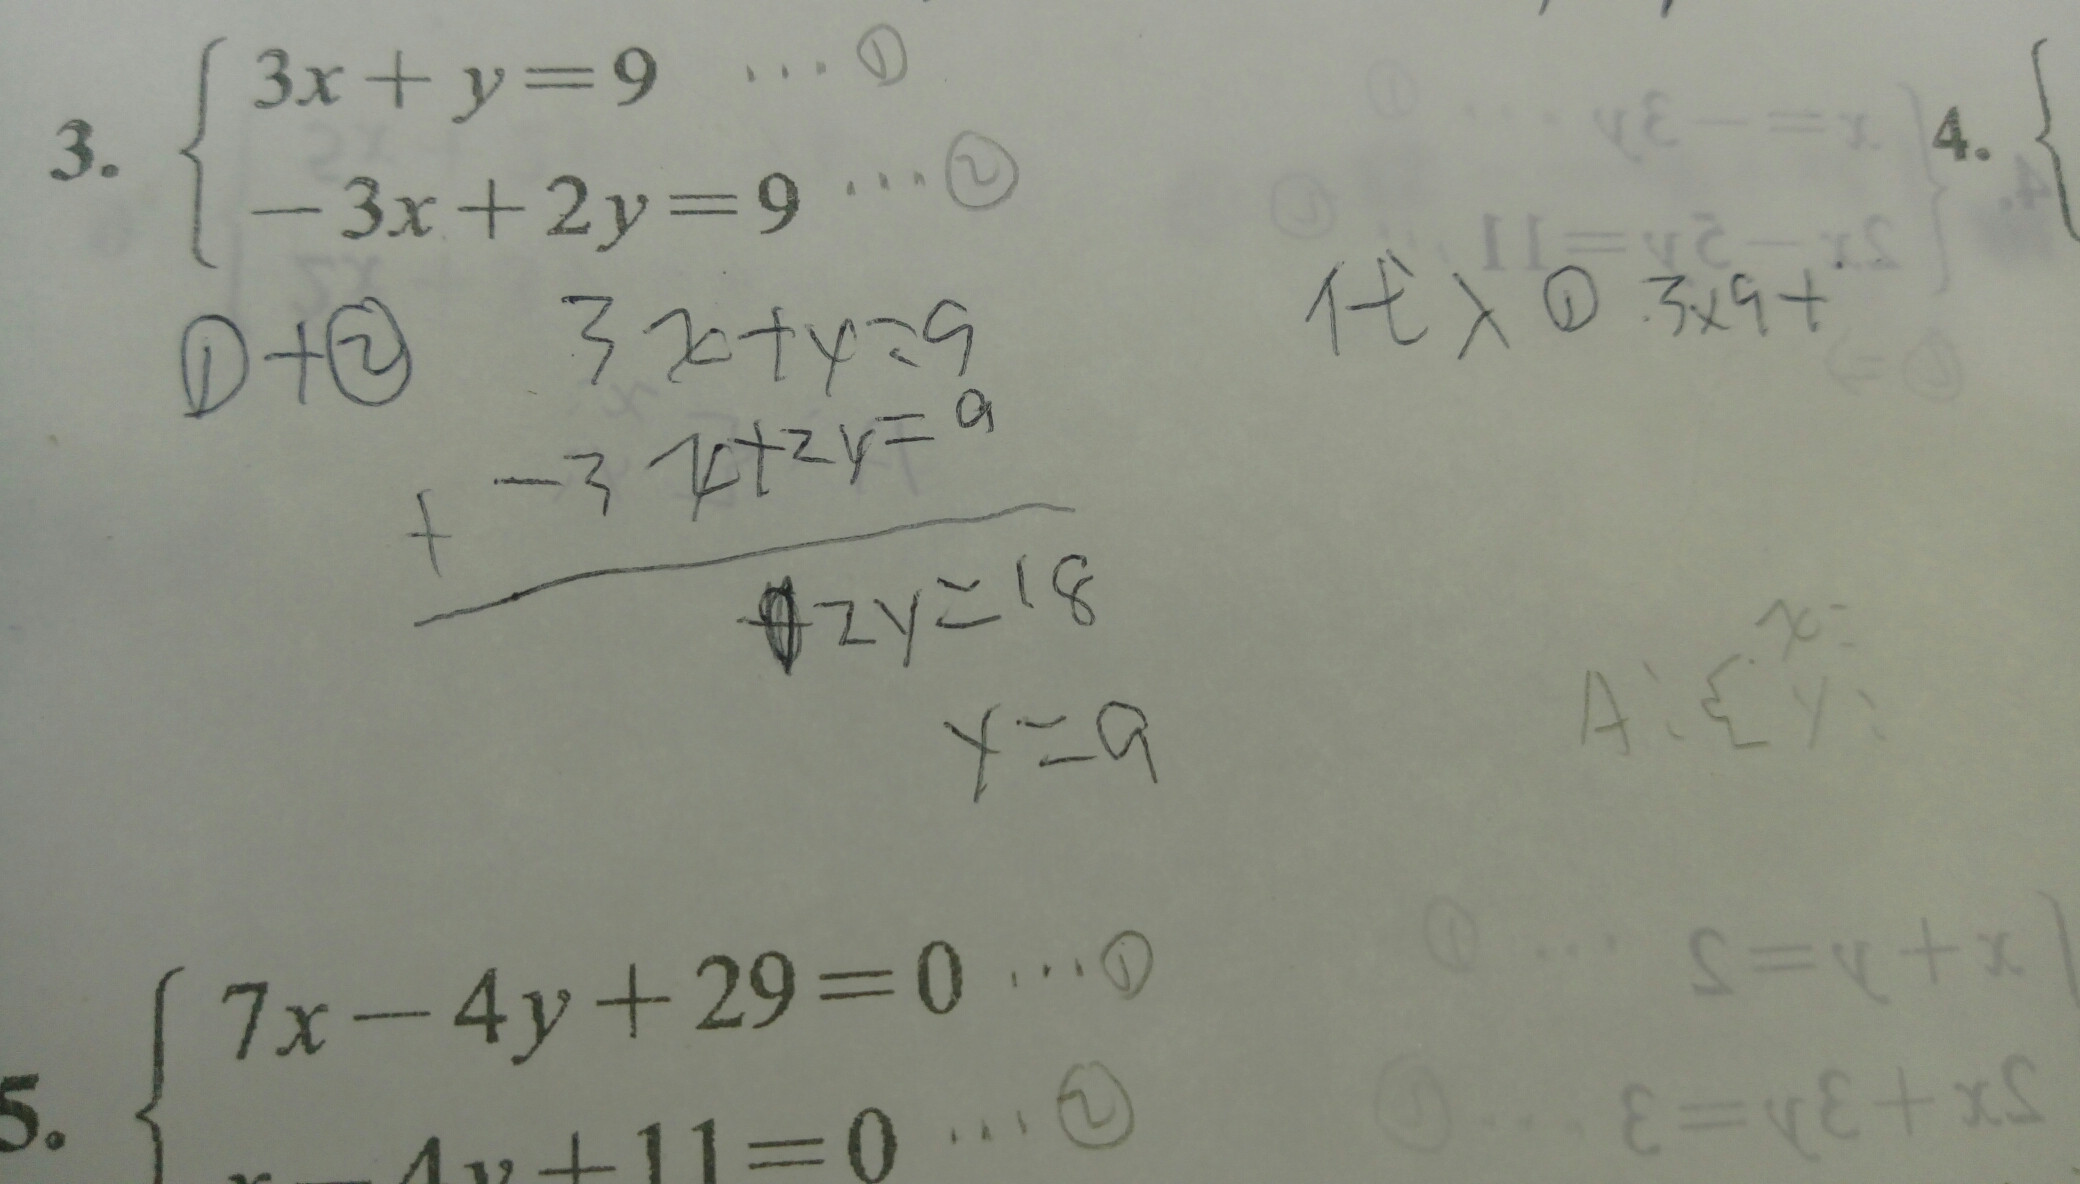 3. { 3x + y = 9 … ①
-3x + 2y = 9 … ②
① + ② 3x + y = 9
+ -3x + 2y = 9
2y = 18
y = 9
代入① 3x9+
x=
A: { y:
4. {
5. { 7x - 4y + 29 = 0 … ①
x - 4y + 11 = 0 … ②